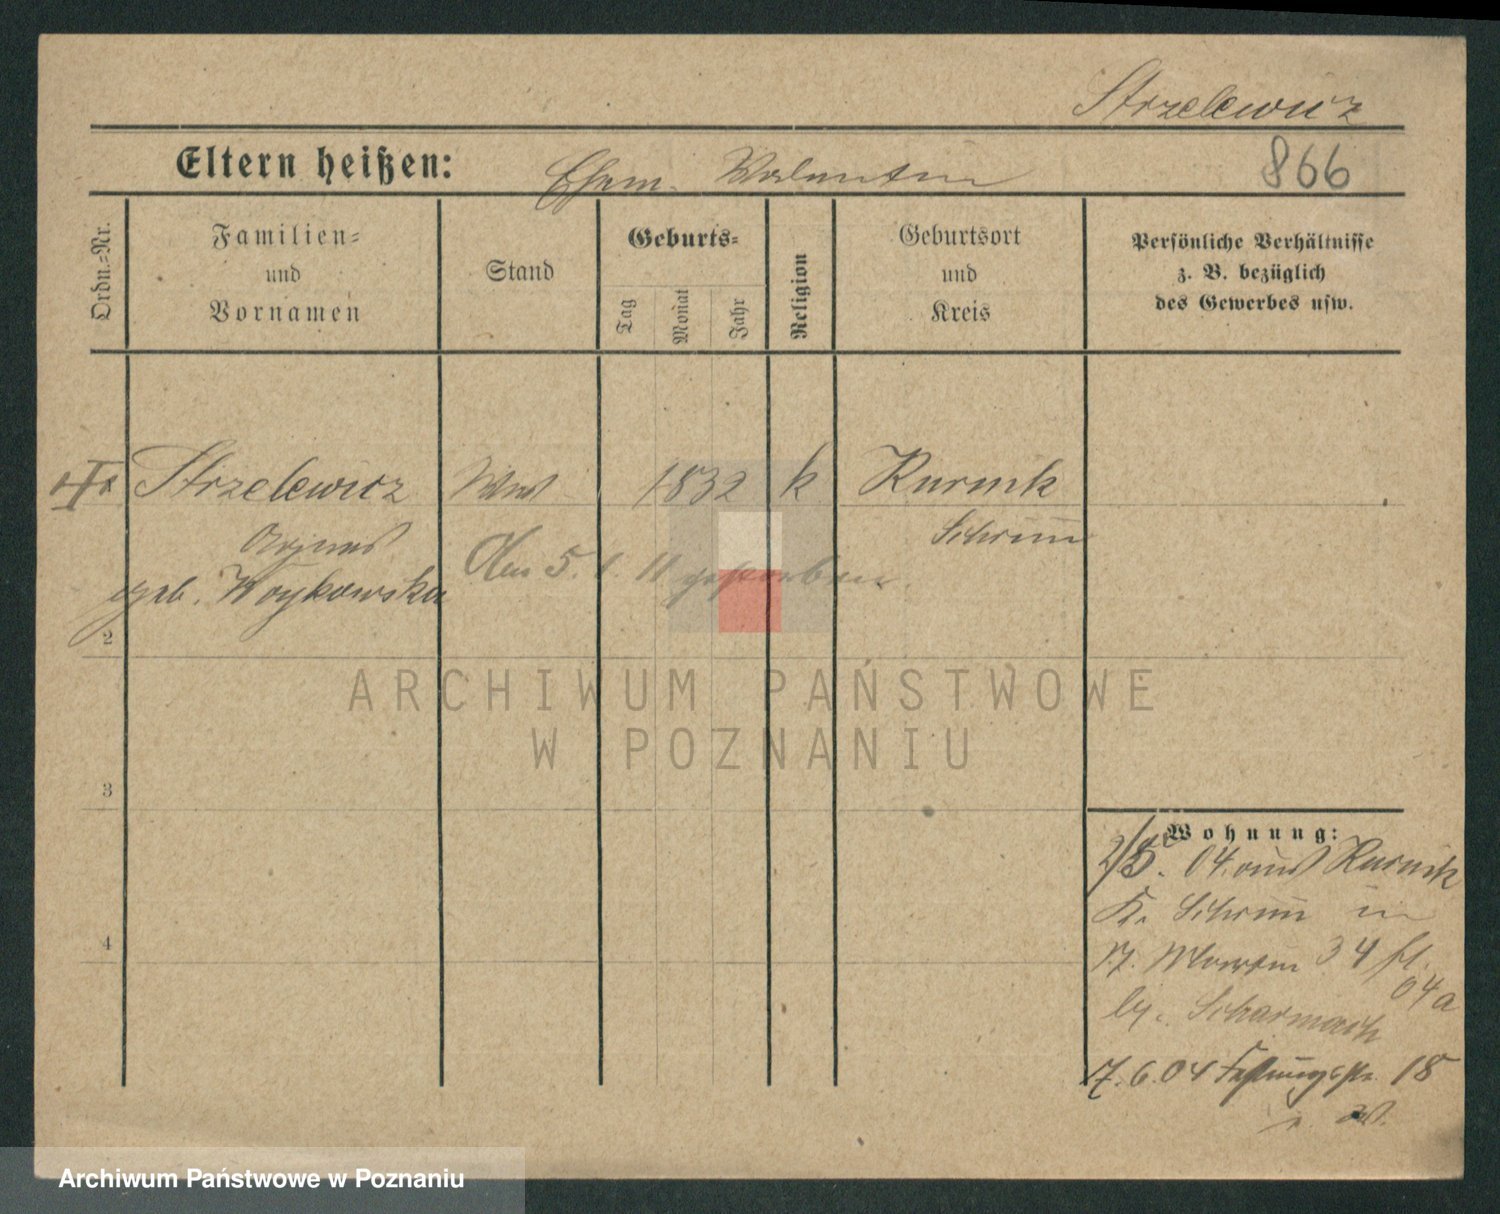 Strzelewicz
Eltern heißen: Ehem. Valentin 866
Ordn.-Nr.
Familien-
und
Vornamen
Stand
Geburts-
Tag
Monat
Jahr
Religion
Geburtsort
und
Kreis
Persönliche Verhältnisse
z. B. bezüglich
des Gewerbes usw.
Strzelewicz Ww 1832 k Kurnik
Schrim
Agnes
geb. Woykowska
Am 5. 1. 11 gestorben.
2
3
4
Wohnung:
2/5. 04. aus Kurnik
Kr. Schrim in
St. Martin 34
04a
by. Scharmach
7. 6. 04 Festungsstr. 18
ARCHIWUM PAŃSTWOWE
W POZNANIU
Archiwum Państwowe w Poznaniu